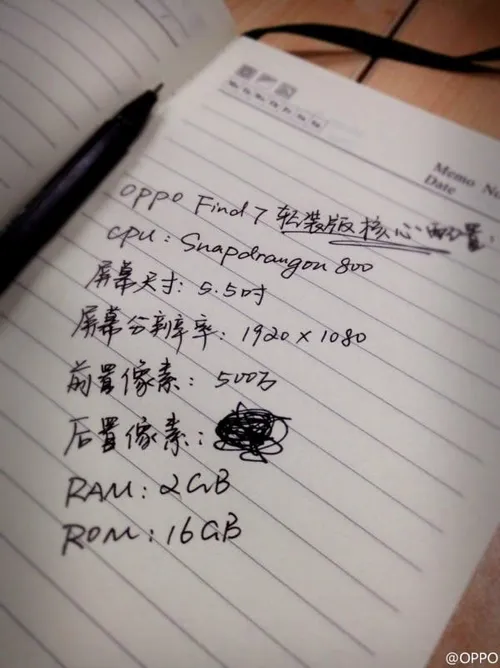 Mo Tu We Th Fr Sa Su
Memo No.
Date
OPPO Find 7 轻装版核心配置:
CPU: Snapdrangon 800
屏幕尺寸: 5.5吋
屏幕分辨率: 1920×1080
前置像素: 500万
后置像素:
RAM: 2GB
ROM: 16GB
@OPPO